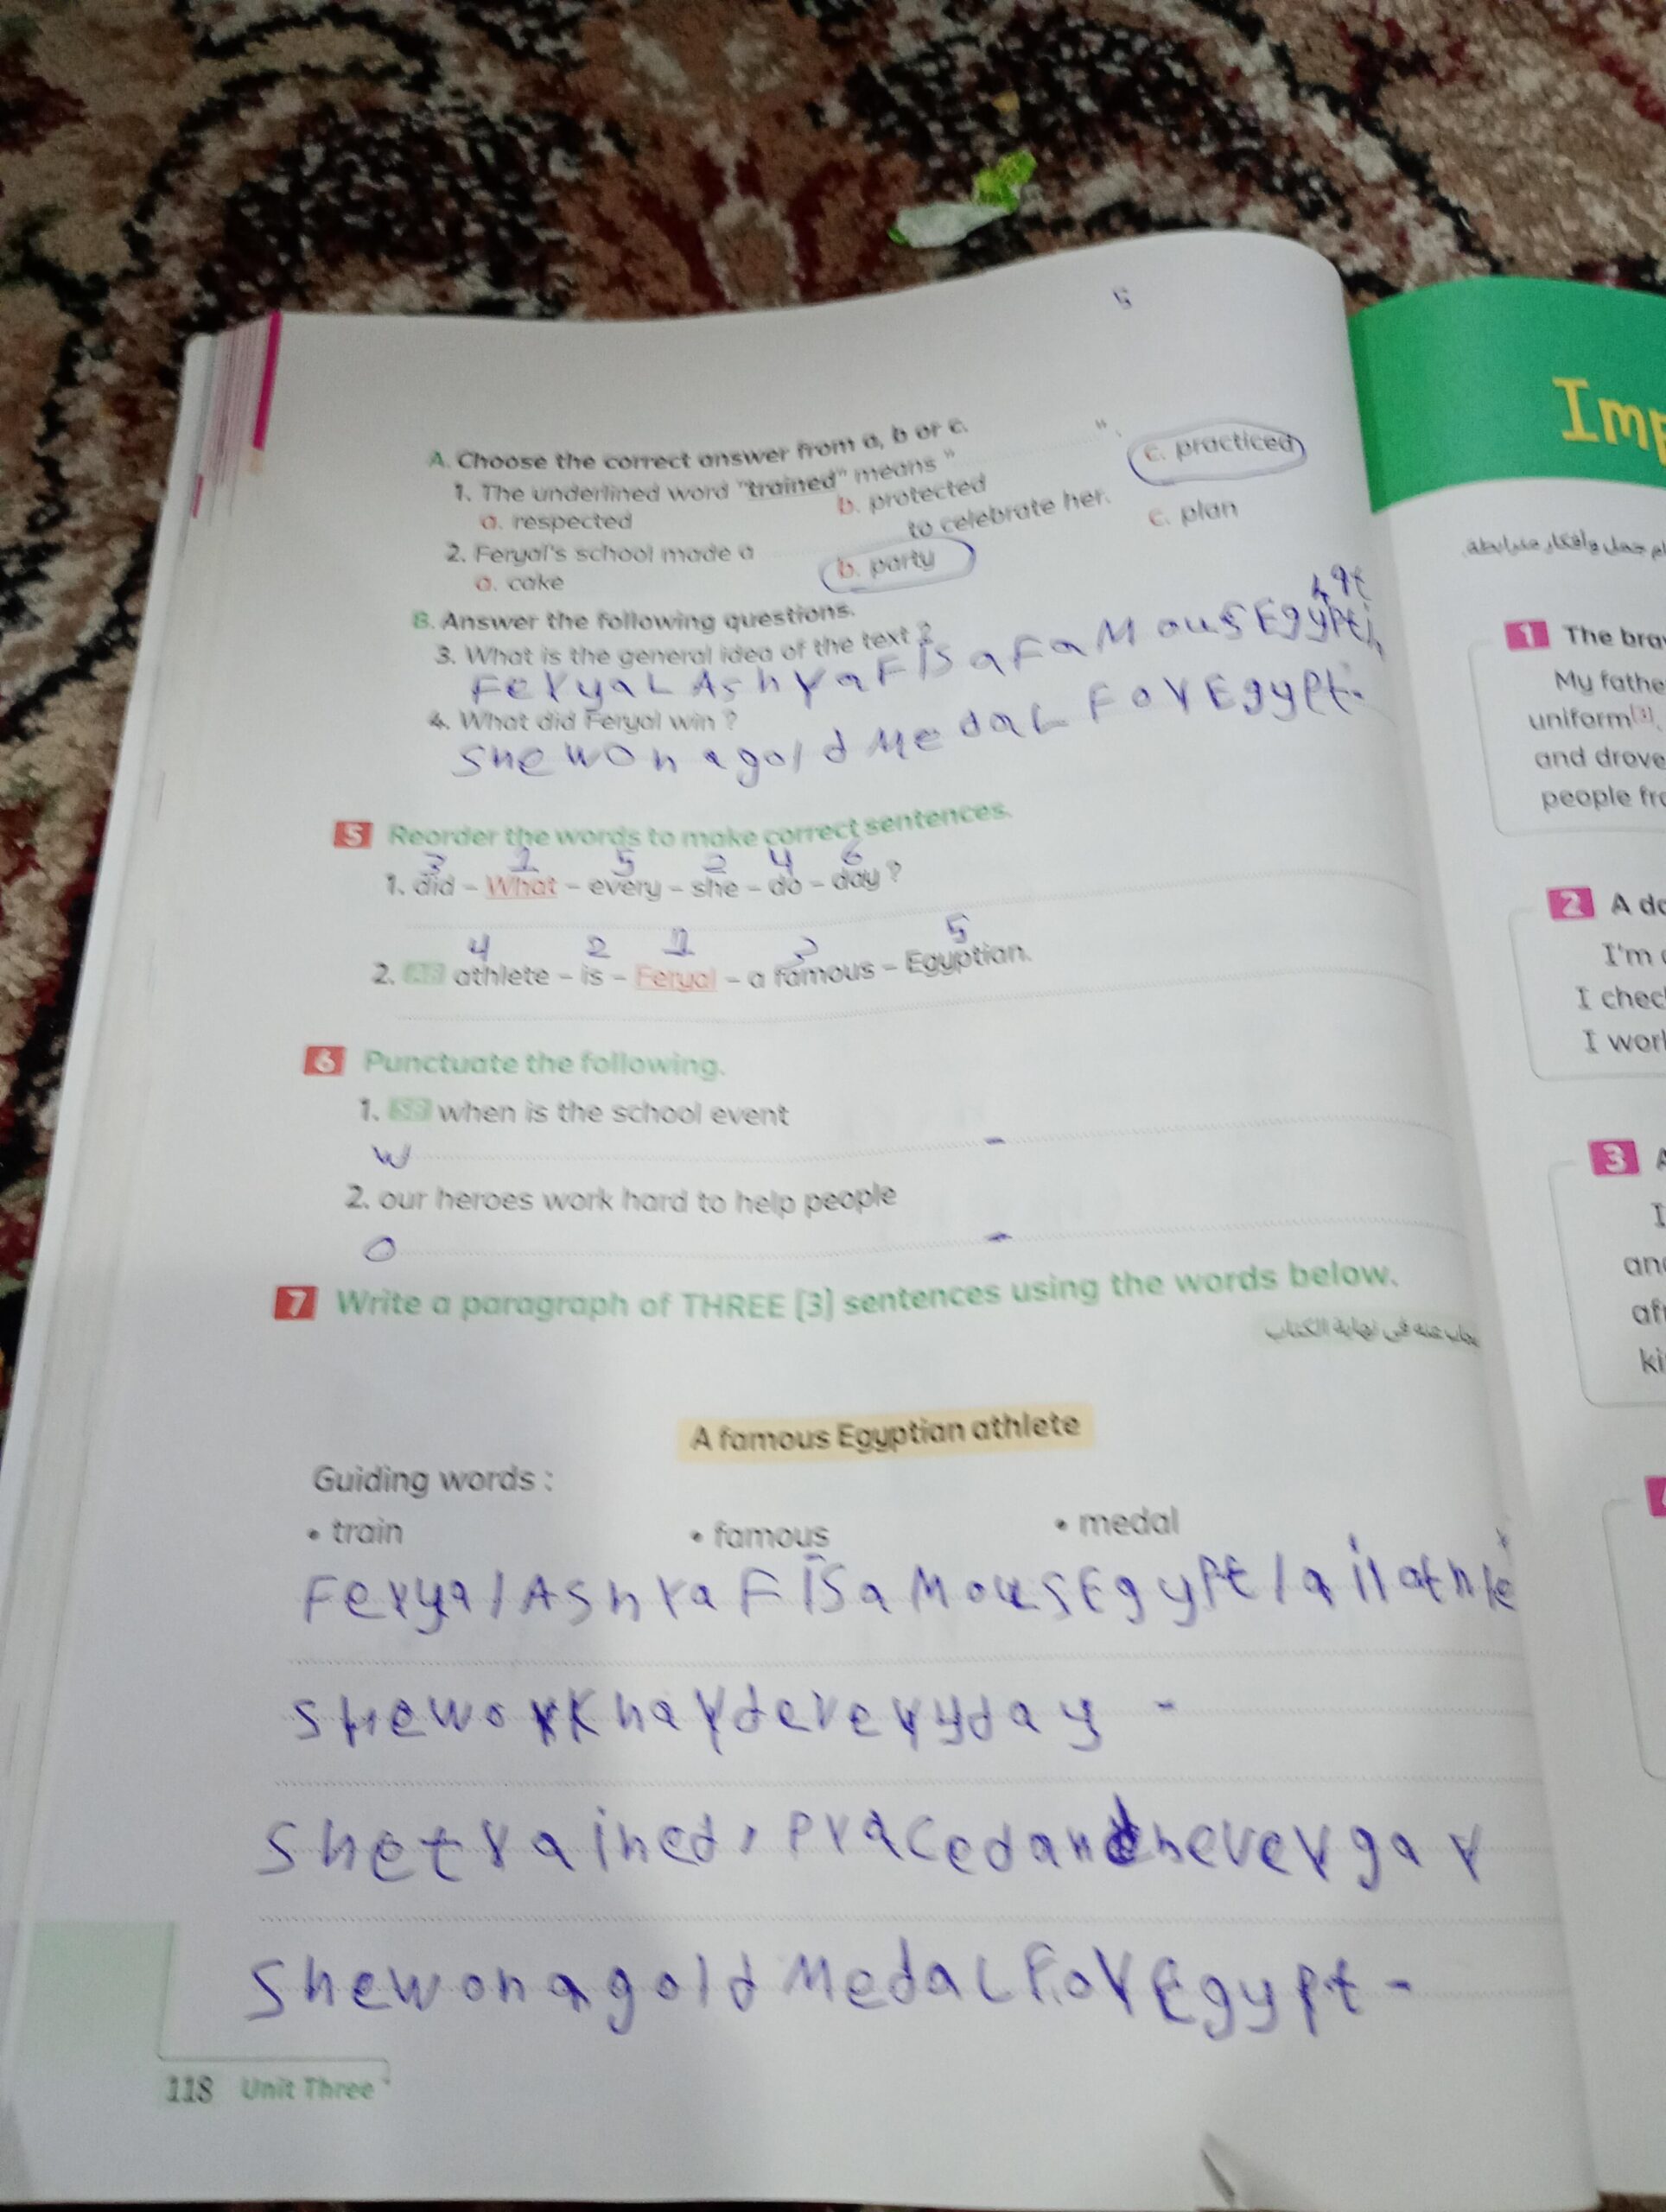 5
A. Choose the correct answer from a, b or c.
1. The underlined word "trained" means " ".
a. respected b. protected c. practiced
2. Feryal's school made a to celebrate her.
a. cake b. party c. plan
B. Answer the following questions.
3. What is the general idea of the text ?
Feryal Ashraf is a famous Egypti
4. What did Feryal win ?
she won a gold medal For Egypt.
5 Reorder the words to make correct sentences.
3 1 5 2 4 6
1. did – What – every – she – do – day ?
4 2 1 3 5
2. athlete – is – Feryal – a famous – Egyptian.
6 Punctuate the following.
1. when is the school event
W
2. our heroes work hard to help people
O
7 Write a paragraph of THREE [3] sentences using the words below.
يجاب عنه فى نهاية الكتاب
A famous Egyptian athlete
Guiding words :
• train • famous • medal
Feryal Ashraf is a mous Egypt
she work hard every day
she trained, praced and never gar
she won a gold medal For Egypt
118 Unit Three
Imp
1 The brav
My fathe
uniform[3],
and drove
people fro
2 A do
I'm
I chec
I work
3 A
I
and
aft
ki